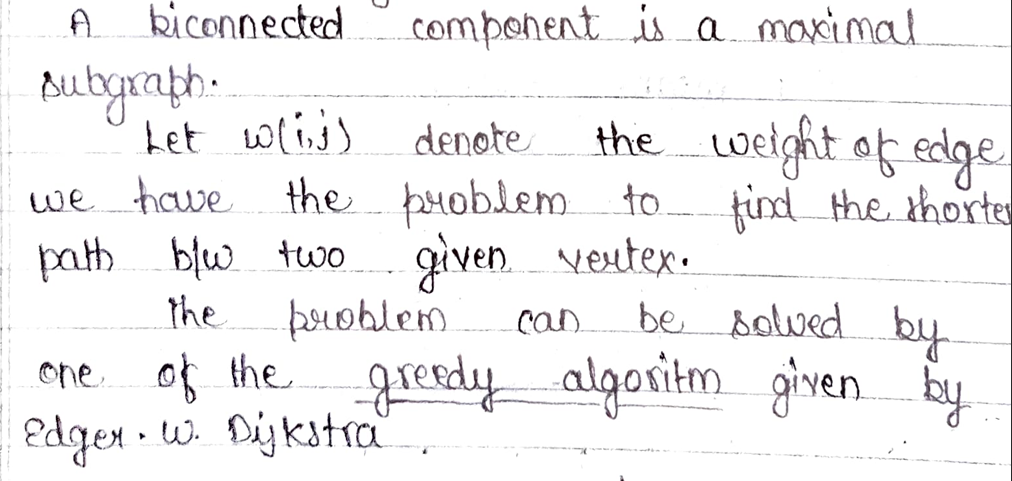 A biconnected component is a maximal
subgraph.
Let w(i,j) denote the weight of edge
we have the problem to find the shortes
path b/w two given vertex.
The problem can be solved by
one of the greedy algoritm given by
Edger. W. Dijkstra